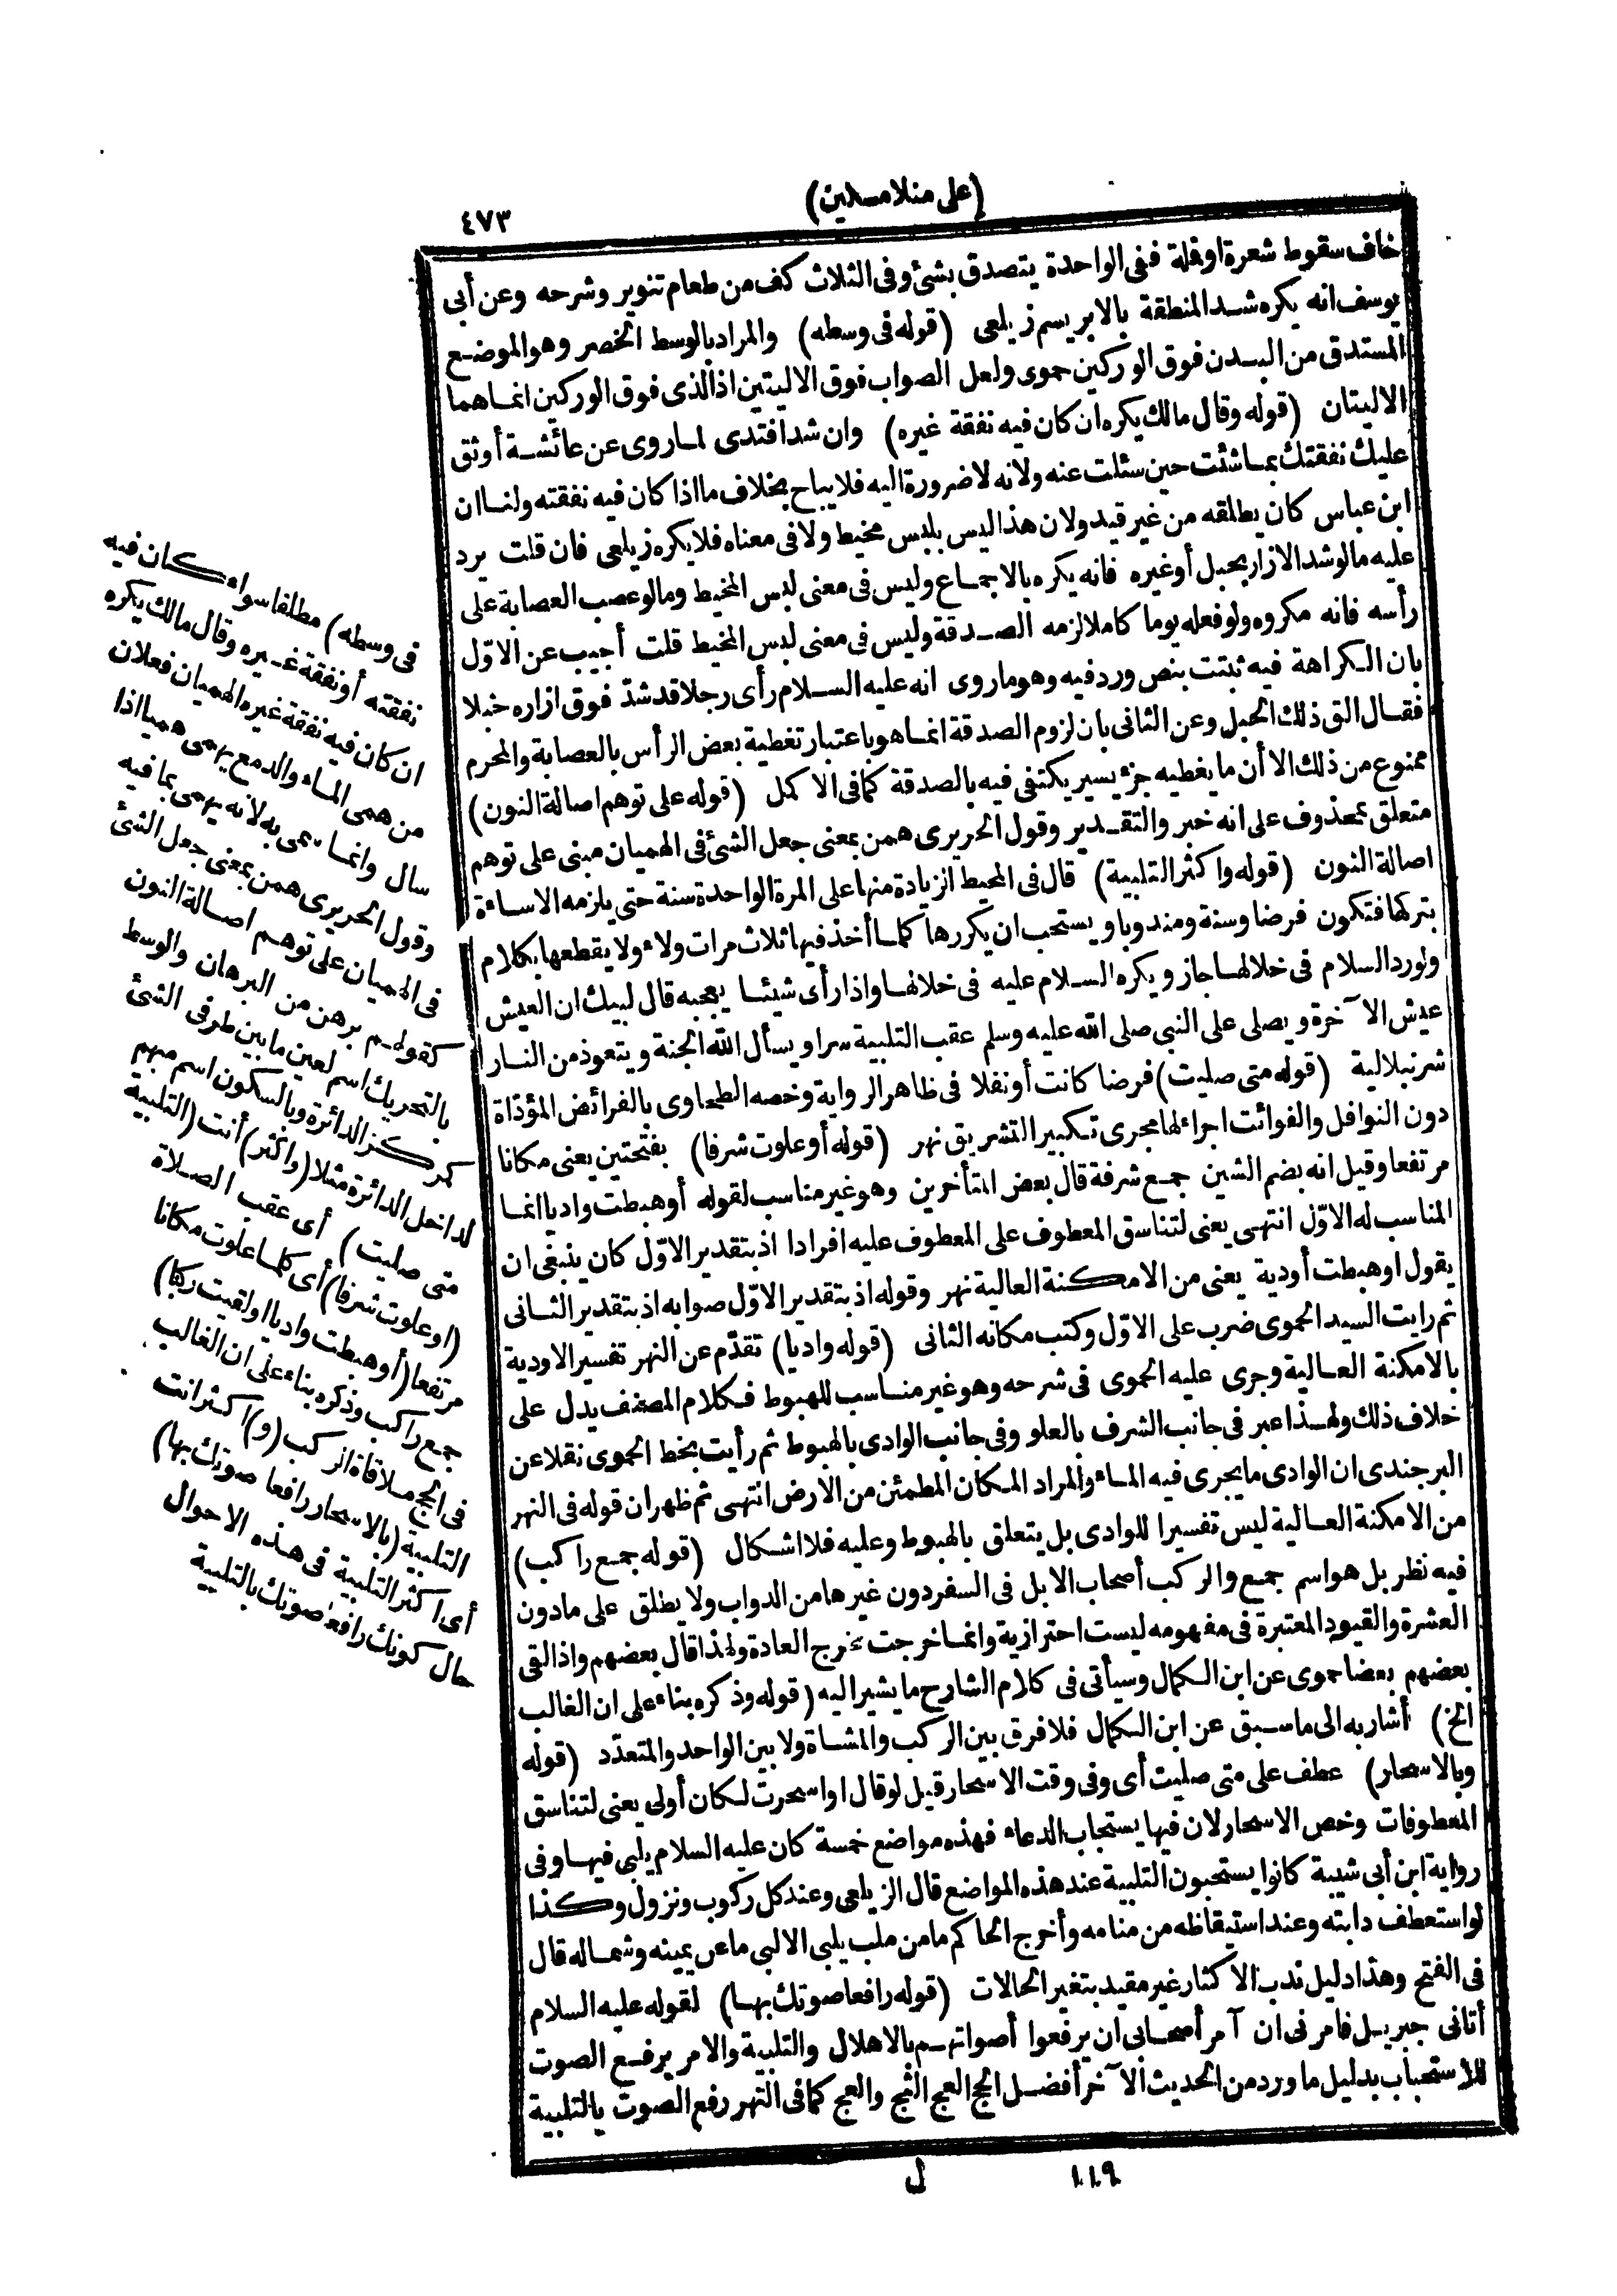 (على منلامسكين)
٤٧٣
خاف سقوط شعرة اوقلة ففى الواحدة يتصدق بشئ وفى الثلاث كف من طعام تنوير وشرحه وعن أبى
يوسف انه يكره شد المنطقة بالابريسم زيلعى (قوله فى وسطه) والمراد بالوسط الخصر وهو الموضع
المستدق من البدن فوق الوركين حموى ولعل الصواب فوق الاليتين اذ الذى فوق الوركين انما هما
الاليتان (قوله وقال مالك يكره ان كان فيه نفقة غيره) وان شد افتدى لما روى عن عائشة أوثق
عليك نفقتك بما شئت حين سئلت عنه ولانه لا ضرورة اليه فلا يباح بخلاف ما اذا كان فيه نفقته ولنا ان
ابن عباس كان يطلقه من غير قيد ولان هذا ليس بلبس مخيط ولا فى معناه فلا يكره زيلعى فان قلت يرد
عليه ما لو شد الازار بحبل أو غيره فانه يكره بالاجماع وليس فى معنى لبس المخيط وما لو عصب العصابة على
رأسه فانه مكروه ولو فعله يوما كاملا لزمه الصدقة وليس فى معنى لبس المخيط قلت أجيب عن الاوّل
بان الكراهة فيه ثبتت بنص ورد فيه وهو ما روى انه عليه السلام رأى رجلا قد شدّ فوق ازاره حبلا
فقال الق ذلك الحبل وعن الثانى بان لزوم الصدقة انما هو باعتبار تغطية بعض الرأس بالعصابة والمحرم
ممنوع من ذلك الا أن ما يغطيه جزء يسير يكتفى فيه بالصدقة كما فى الاكمل (قوله على توهم اصالة النون)
متعلق بمحذوف على انه خبر والتقدير وقول الحريرى همن بمعنى جعل الشئ فى الهميان مبنى على توهم
اصالة النون (قوله واكثر التلبية) قال فى المحيط الزيادة منها على المرة الواحدة سنة حتى يلزمه الاساءة
بتركها فتكون فرضا وسنة ومندوبا ويستحب ان يكررها كلما أخذ فيها ثلاث مرات ولاء ولا يقطعها بكلام
ولو رد السلام فى خلالها جاز ويكره السلام عليه فى خلالها واذا رأى شيئا يعجبه قال لبيك ان العيش
عيش الآخرة ويصلى على النبى صلى الله عليه وسلم عقب التلبية سرا ويسأل الله الجنة ويتعوذ من النار
شرنبلالية (قوله متى صليت) فرضا كانت أو نفلا فى ظاهر الرواية وخصه الطحاوى بالفرائض المؤدّاة
دون النوافل والفوائت اجراء لها مجرى تكبير التشريق نهر (قوله أو علوت شرفا) بفتحتين يعنى مكانا
مرتفعا وقيل انه بضم الشين جمع شرفة قال بعض المتأخرين وهو غير مناسب لقوله أو هبطت واديا انما
المناسب له الاوّل انتهى يعنى لتناسق المعطوف على المعطوف عليه افرادا اذ بتقدير الاوّل كان ينبغى ان
يقول او هبطت أودية يعنى من الامكنة العالية نهر وقوله اذ بتقدير الاوّل صوابه اذ بتقدير الثانى
ثم رايت السيد الحموى ضرب على الاوّل وكتب مكانه الثانى (قوله واديا) تقدّم عن النهر تفسير الاودية
بالامكنة العالية وجرى عليه الحموى فى شرحه وهو غير مناسب للهبوط فكلام المصنف يدل على
خلاف ذلك ولهذا عبر فى جانب الشرف بالعلو وفى جانب الوادى بالهبوط ثم رأيت بخط الحموى نقلا عن
البرجندى ان الوادى ما يجرى فيه الماء والمراد المكان المطمئن من الارض انتهى ثم ظهر ان قوله فى النهر
من الامكنة العالية ليس تفسيرا للوادى بل يتعلق بالهبوط وعليه فلا اشكال (قوله جمع راكب)
فيه نظر بل هو اسم جمع والركب أصحاب الابل فى السفر دون غيرها من الدواب ولا يطلق على مادون
العشرة والقيود المعتبرة فى مفهومه ليست احترازية وانما خرجت مخرج العادة ولذا قال بعضهم واذا لقى
بعضهم بعضا حموى عن ابن الكمال وسيأتى فى كلام الشارح ما يشير اليه (قوله وذكره بناء على ان الغالب
الخ) أشار به الى ما سبق عن ابن الكمال فلا فرق بين الركب والمشاة ولا بين الواحد والمتعدّد (قوله
وبالاسحار) عطف على متى صليت أى وفى وقت الاسحار قيل لو قال او اسحرت لكان أولى يعنى لتناسق
المعطوفات وخص الاسحار لان فيها يستجاب الدعاء فهذه مواضع خمسة كان عليه السلام يلبى فيها وفى
رواية ابن أبى شيبة كانوا يستحبون التلبية عند هذه المواضع قال الزيلعى وعند كل ركوب ونزول وكذا
لو استعطف دابته وعند استيقاظه من منامه وأخرج الحاكم ما من ملب يلبى الا لبى ما عن يمينه وشماله قال
فى الفتح وهذا دليل ندب الاكثار غير مقيد بتغير الحالات (قوله رافعا صوتك بها) لقوله عليه السلام
أتانى جبريل فامرنى ان آمر أصحابى ان يرفعوا أصواتهم بالاهلال والتلبية والامر برفع الصوت
للاستحباب بدليل ما ورد من الحديث الآخر أفضل الحج العج الثج والعج كما فى النهر رفع الصوت بالتلبية
فى وسطه) مطلقا سواء كان فيه
نفقته أو نفقة غيره وقال مالك يكره
ان كان فيه نفقة غيره الهميان فعلان
من همى الماء والدمع يهمى هميا اذا
سال وانما سمى به لانه يهمى بما فيه
وقول الحريرى همن بمعنى جعل الشئ
فى الهميان على توهم اصالة النون
كقولهم برهن من البرهان والوسط
بالتحريك اسم لعين ما بين طرفى الشئ
كمركز الدائرة وبالسكون اسم مبهم
لداخل الدائرة مثلا (واكثر) أنت (التلبية
متى صليت) أى عقب الصلاة
(او علوت شرفا) أى كلما علوت مكانا
مرتفعا (أو هبطت واديا او لقيت ركبا)
جمع راكب وذكره بناء على ان الغالب
فى الحج ملاقاة الركب (و) اكثر انت
التلبية (بالاسحار رافعا صوتك بها)
أى اكثر التلبية فى هذه الاحوال
حال كونك رافعا صوتك بالتلبية
١١٩
ل